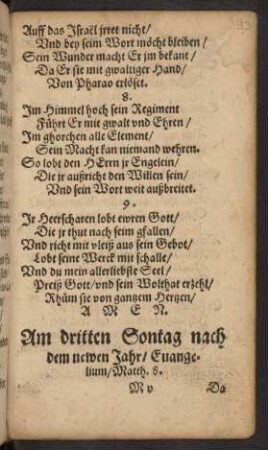 Auff das Israël jrret nicht/
Vnd bey seim Wort möcht bleiben/
Sein Wunder macht Er jm bekant/
Da Er sie mit gwaltiger Hand/
Von Pharao erlöset.
8.
Im Himmel hoch sein Regiment
Führt Er mit gwalt vnd Ehren/
Im ghorchen alle Element/
Sein Macht kan niemand wehren.
So lobt den HErrn jr Engelein/
Die jr außricht den Willen sein/
Vnd sein Wort weit außbreitet.
9.
Ir Heerscharen lobt ewren Gott/
Die jr thut nach seim gfallen/
Vnd richt mit vleiß aus sein Gebot/
Lobt seine Werck mit schalle/
Vnd du mein allerliebste Seel/
Preiß Gott/vnd sein Wolthat erzehl/
Rhüm sie von gantzem Hertzen/
A M E N.
Am dritten Sontag nach
dem newen Jahr/ Euange-
lium/Matth. 8.
M v Da